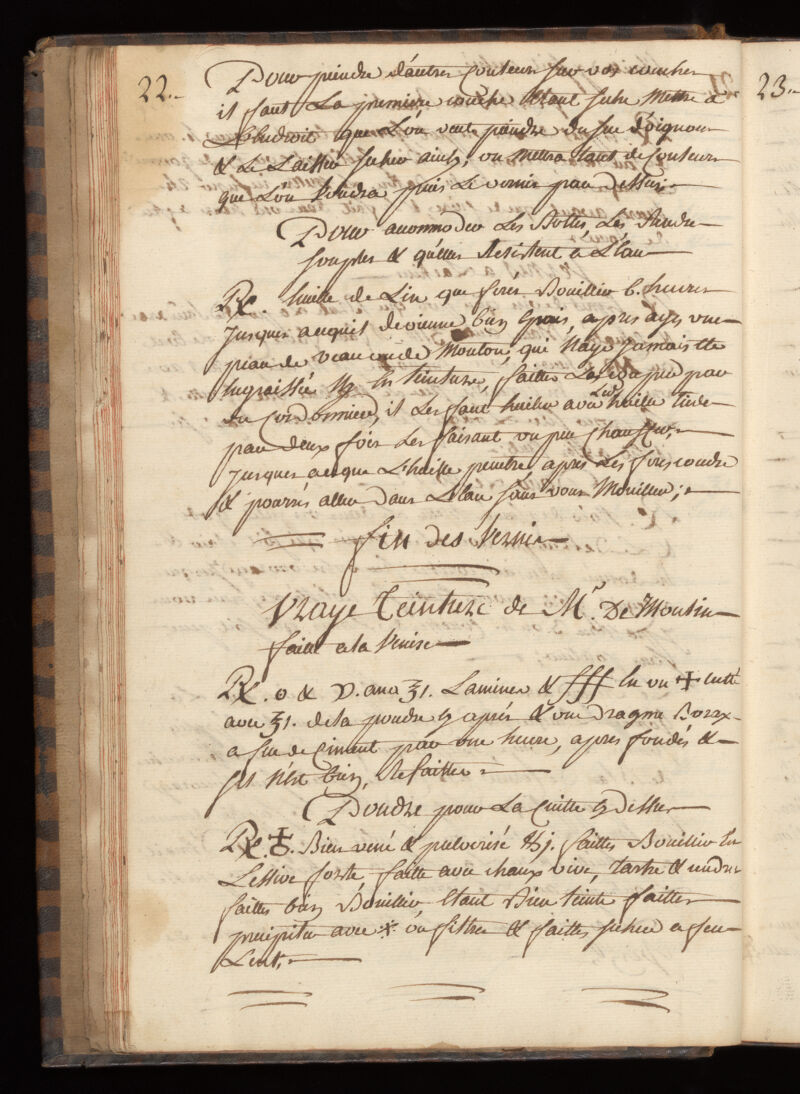 22.
Pour peindre d'autres Couleurs sur vos couches
il faut La premiere couche Etant seche Mettre a
L'Endroit que L'on veut peindre du suc d'oignon
& Le Laisser secher ainsy, on mettra tant de Couleurs
que L'on voudra puis Le vernir par dessus.
Pour accommoder Les Bottes, Les Rendre
souples & qu'elles Resistent a L'Eau
Re. huille de Lin que feres Bouillir 6. heures
jusques acequil devienne bien Epais, apres ayes une
peau de veau ou de Mouton, qui Naye jamais Ete
Engraissée Ny En teinture, faittes Les
au Cordonnier, il Les faut huiler avec huille tiede
par deux fois Les faisant un peu Chauffer,
jusques aceque L'huille penetre apres Les feres coudre
& pourrés aller dans L'Eau sans vous Mouiller;
fin des Vernis
Vraye Teinture de Mr. De Moulin
faitte a la Venise
Re. o & D. ana ʒ1. Laminer & fff En un + Lutté
avec ʒ1. de la poudre cy aprés & une dragme Borax
a feu de Ciment par une heure, apres fondés &
sil n'est bien, Refaittes
Poudre pour La Cuitte cy Dessus
Re. ♁. Bien vené & pulverisé ℔j. faittes Bouillir En
Lessive forte faitte avec chaux vive, Tartre & cendres
faittes bien Bouillir Etant Bien teinte faittes
precipiter avec ⁜ on filtre & faittes secher a feu
Lent.
23.